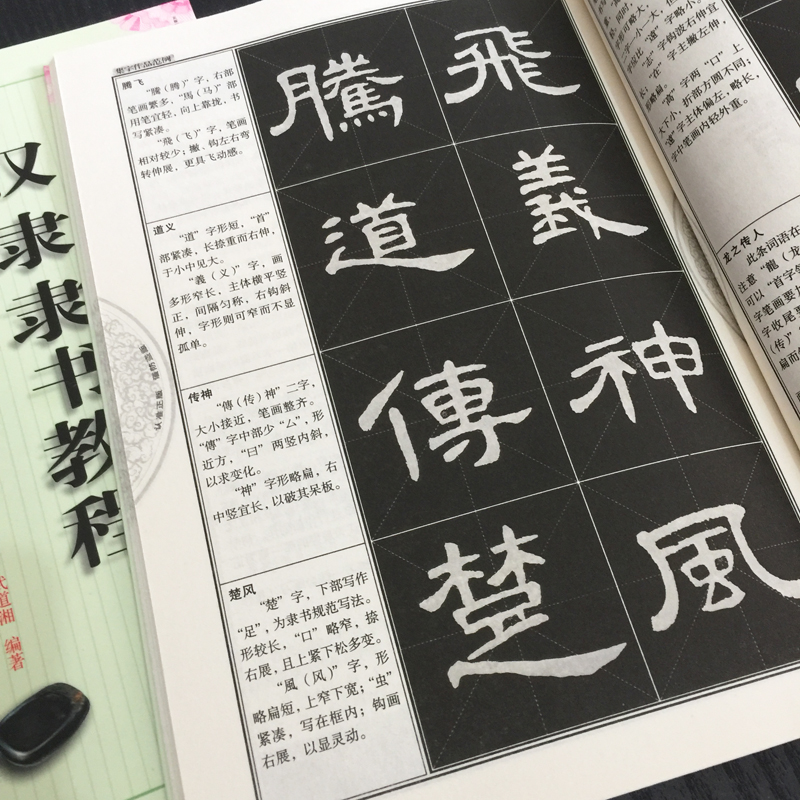 汉隶隶书教程
编著
集字作品范例
腾飞
“騰(腾)”字，右部
笔画繁多，“馬(马)”部
用笔宜轻，向上靠拢，书
写紧凑。
“飛(飞)”字，笔画
相对较少；撇、钩左右弯
转伸展，更具飞动感。
騰飛
道义
“道”字形短，“首”
部紧凑，长捺重而右伸，
于小中见大。
“義(义)”字，画
多形窄长，主体横平竖
正，间隔匀称，右钩斜
伸，字形则可窄而不显
孤单。
道義
传神
“傳(传)神”二字，
大小接近，笔画整齐。
“傳”字中部少“厶”，形
近方，“曰”两竖内斜，
以求变化。
“神”字形略扁，右
中竖宜长，以破其呆板。
傳神
楚风
“楚”字，下部写作
“足”，为隶书规范写法。
形较长，“口”略窄，捺
右展，且上紧下松多变。
“風(风)”字，形
略扁短，上窄下宽；“虫”
紧凑，写在框内；钩画
右展，以显灵动。
楚風
“高”字两“口”上
大下小，折部方圆不同；
“遠”字主体偏左，略长，
字中笔画内轻外重。
龙之传人
此条词语在
注意
“龍(龙
可以“首字
字笔画要
字收尾要
(传)”
扁而